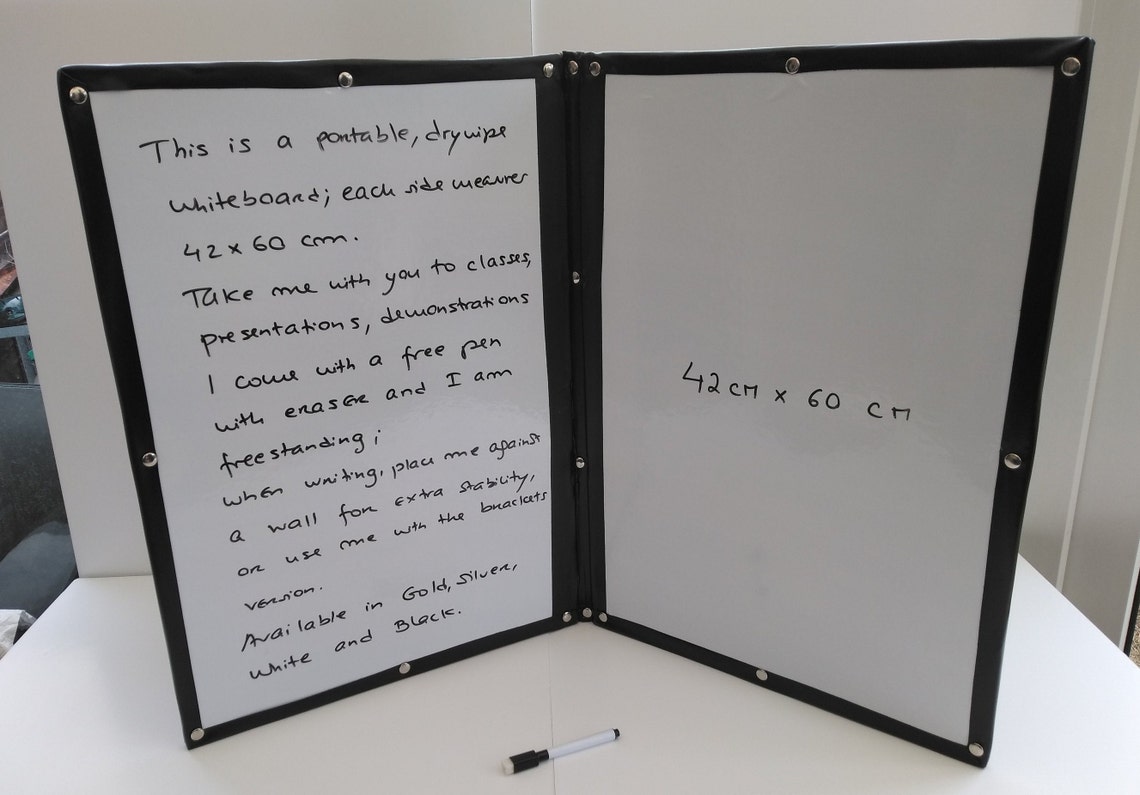 This is a portable, drywipe
whiteboard; each side measures
42 x 60 cm.
Take me with you to classes,
presentations, demonstrations
I come with a free pen
with eraser and I am
freestanding;
when writing, place me against
a wall for extra stability,
or use me with the brackets
version.
Available in Gold, silver,
white and Black.
42 cm x 60 cm